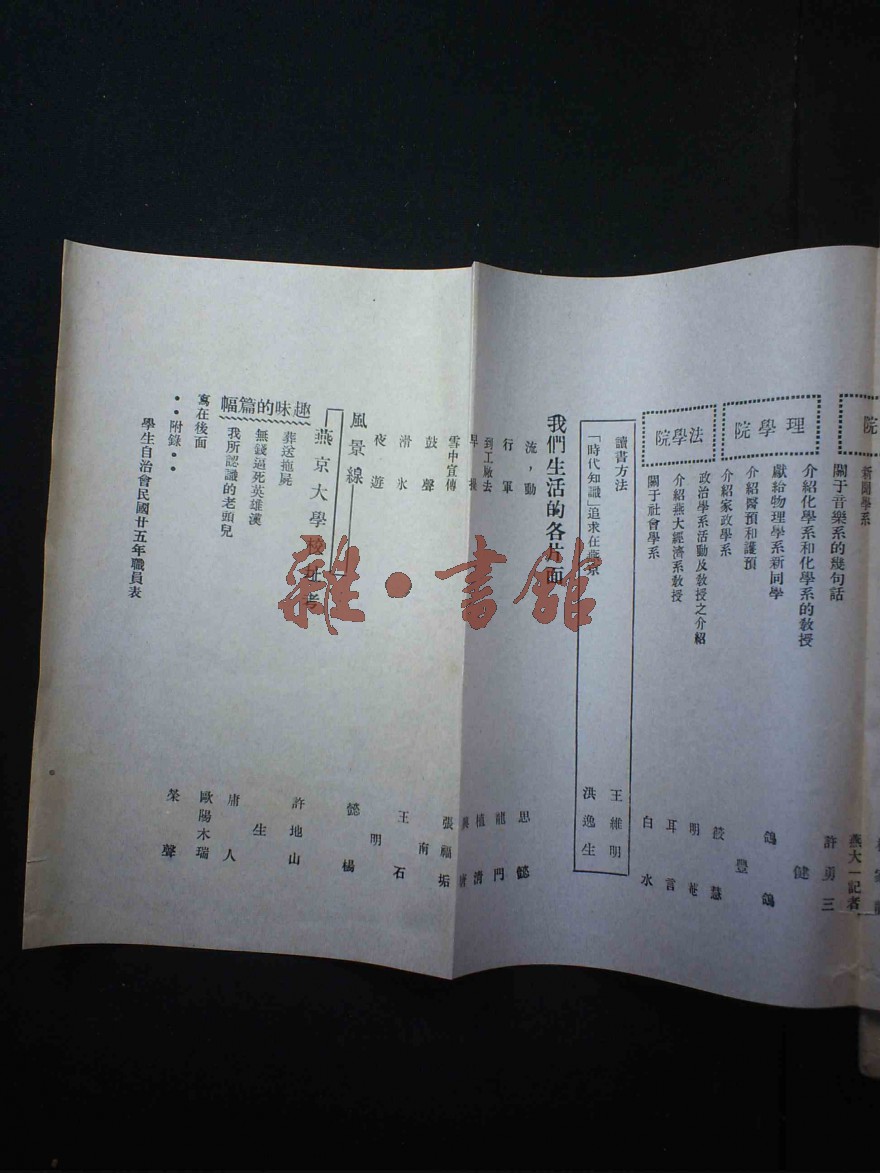 新聞學系
燕大一記者
關于音樂系的幾句話
許勇三
理學院
介紹化學系和化學系的教授
健
獻給物理學系新同學
鴿鴿
介紹醫預和護預
豐
介紹家政學系
慧
法學院
政治學系活動及教授之介紹
明菴
介紹燕大經濟系教授
耳言
關于社會學系
白水
讀書方法
王維明
「時代知識」追求在燕京
洪逸生
我們生活的各片面
流，動
思懿
行軍
龍門
到工廠去
植清
早操
雪中宣傳
張福垢
鼓聲
南
滑氷
王石
夜遊
明
風景線
懿楊
燕京大學校址考
許地山
趣味的篇幅
葬送拖屍
生
無錢逼死英雄漢
庸人
我所認識的老頭兒
歐陽木瑞
寫在後面
榮聲
••附錄••
學生自治會民國廿五年職員表
雜•書館